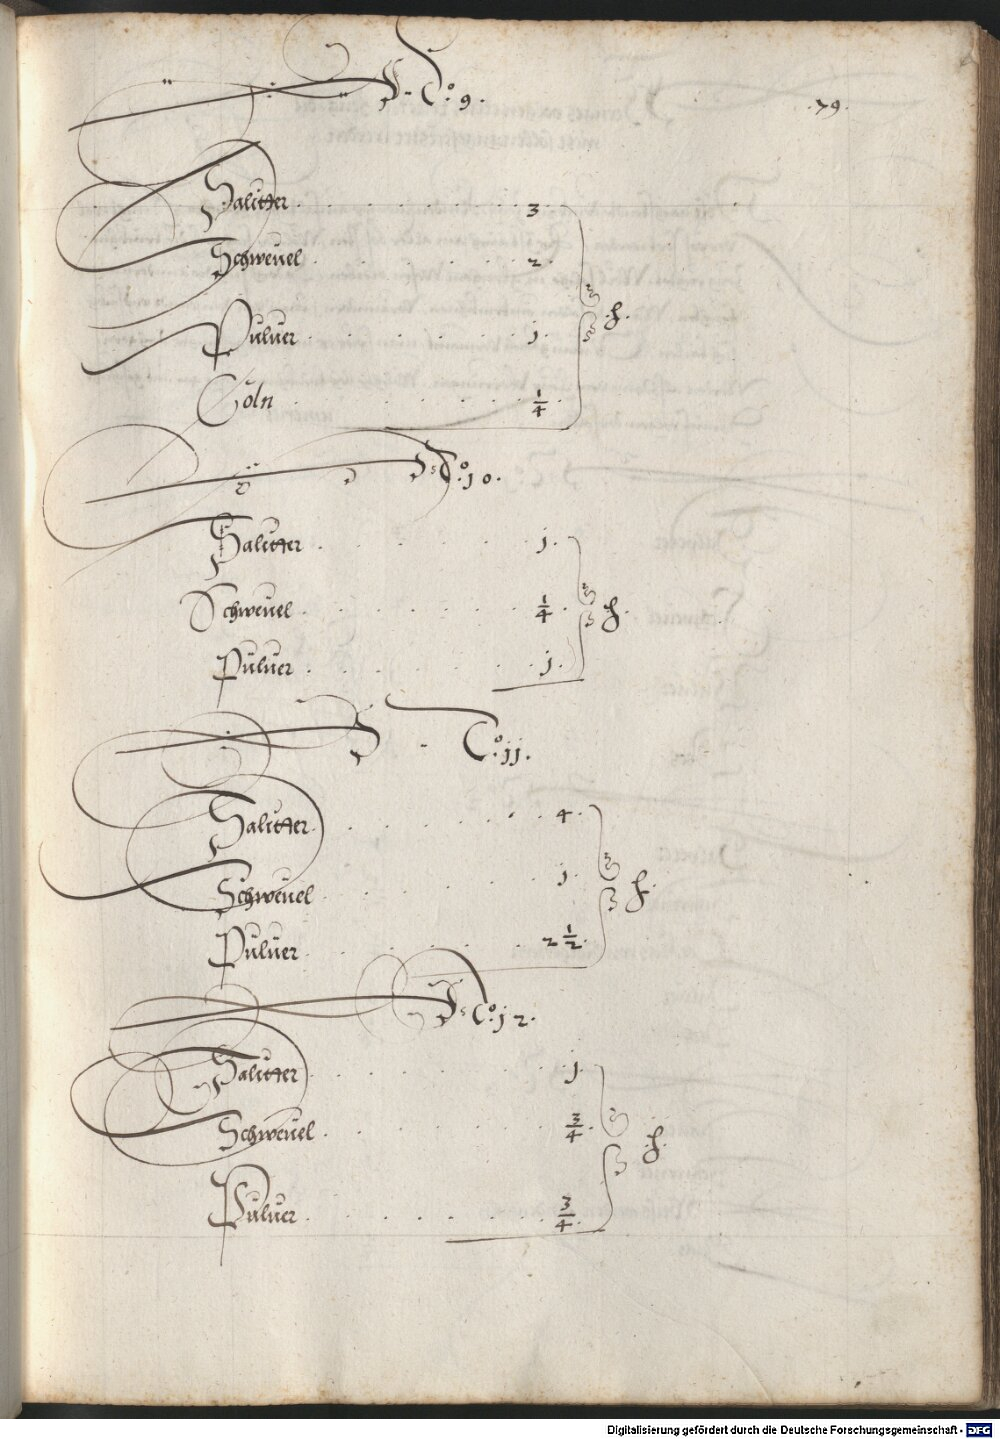 N: Co: 9.
.79.
Salitter . . . . . . . 3.
Schweuel . . . . . . 2.
Puluer . . . . . . . 1.
Cöln . . . . . . 1/4.
℔.
N: Co: 10.
Salitter . . . . . . . 1.
Schweuel . . . . . . 1/4.
Puluer . . . . . . 1.
℔.
N: Co: 11.
Salitter . . . . . . 4.
Schweuel . . . . . . 1.
Puluer . . . . . . 2 1/2.
℔.
N: Co: 12.
Salitter . . . . . . . 1.
Schweuel . . . . . . 3/4.
Puluer . . . . . . 3/4.
℔.
Digitalisierung gefördert durch die Deutsche Forschungsgemeinschaft - DFG